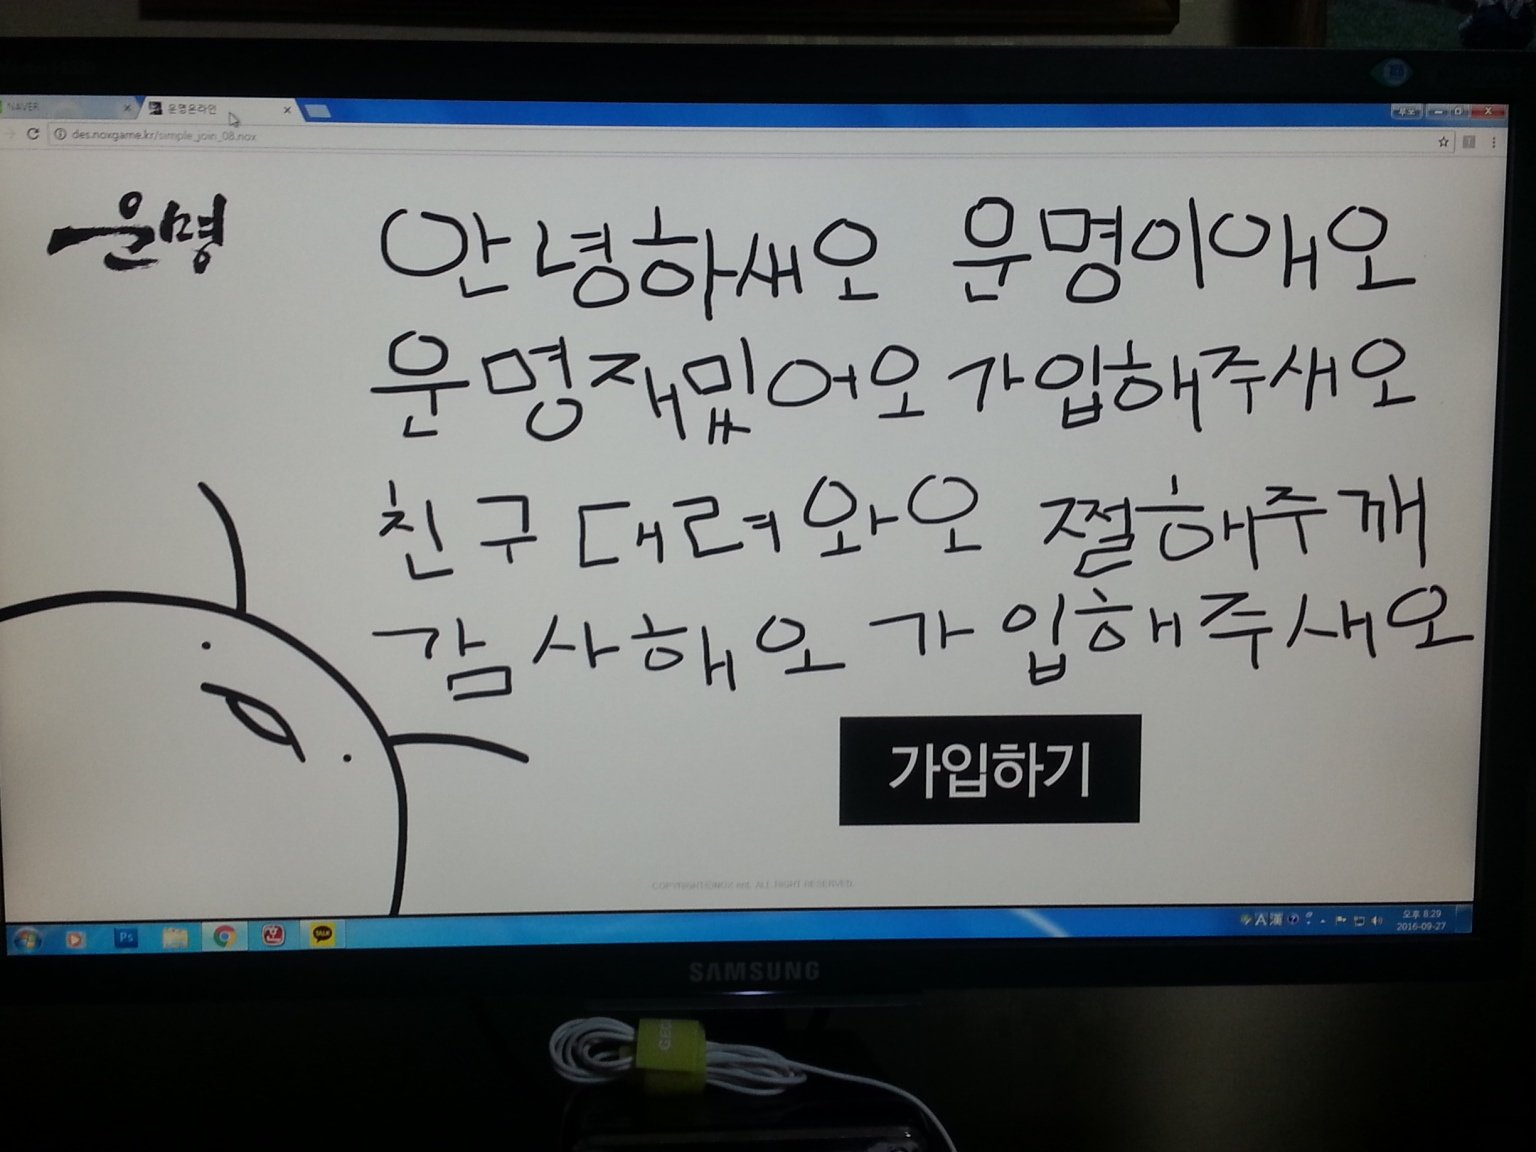 NAVER
운명온라인
des.noxgame.kr/simple_join_08.nox
운명
안녕하새오 운명이애오
운명재밌어오 가입해주새오
친구대려와오 쩔해주깨
감사해오 가입해주새오
가입하기
COPYRIGHT©NOX ent. ALL RIGHT RESERVED.
Ps
TALK
A 漢
오후 8:29
2016-09-27
SAMSUNG